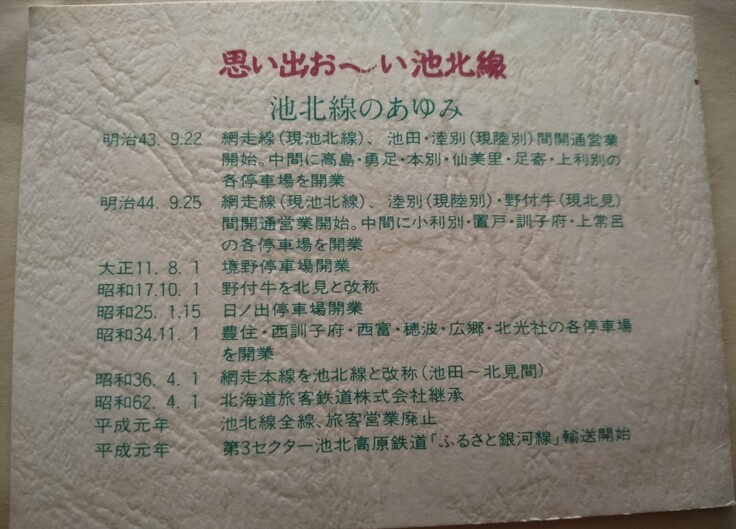 思い出お〜い池北線
池北線のあゆみ
明治43. 9.22 網走線(現池北線)、池田・淕別(現陸別)間開通営業
開始。中間に高島・勇足・本別・仙美里・足寄・上利別の
各停車場を開業
明治44. 9.25 網走線(現池北線)、淕別(現陸別)・野付牛(現北見)
間開通営業開始。中間に小利別・置戸・訓子府・上常呂
の各停車場を開業
大正11. 8. 1 境野停車場開業
昭和17.10. 1 野付牛を北見と改称
昭和25. 1.15 日ノ出停車場開業
昭和34.11. 1 豊住・西訓子府・西富・穂波・広郷・北光社の各停車場
を開業
昭和36. 4. 1 網走本線を池北線と改称(池田～北見間)
昭和62. 4. 1 北海道旅客鉄道株式会社継承
平成元年 池北線全線、旅客営業廃止
平成元年 第3セクター池北高原鉄道「ふるさと銀河線」輸送開始